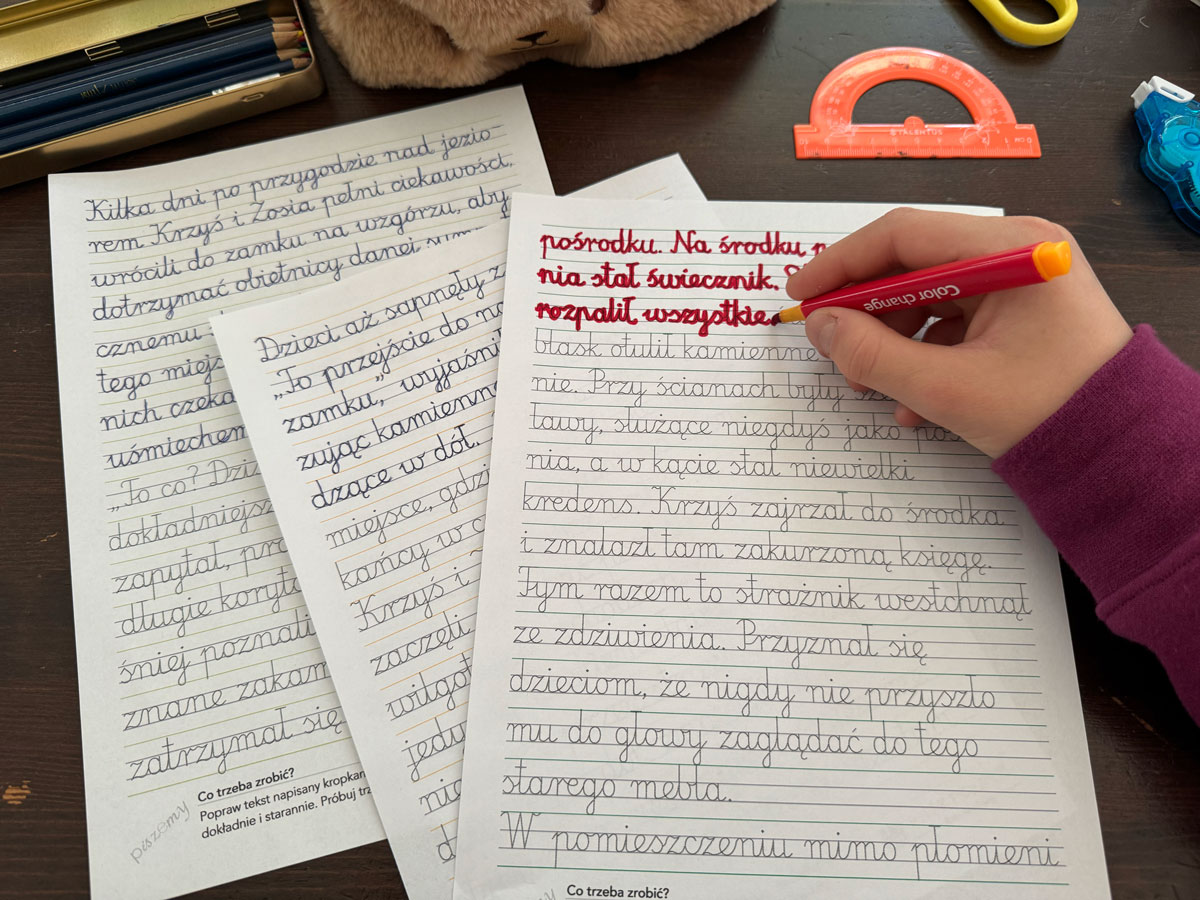 Kilka dni po przygodzie nad jezio-
rem Krzyś i Zosia pełni ciekawości,
wrócili do zamku na wzgórzu, aby
dotrzymać obietnicy danej
cznemu
tego miejs
nich czeka
uśmiechem
„To co? Dzi
dokładniejsz
zapytał, pro
długie koryta
śniej poznali
znane zakam
zatrzymał się
piszemy
Co trzeba zrobić?
Popraw tekst napisany kropkam
dokładnie i starannie. Próbuj trz
Dzieci aż sapnęły z
„To przejście do
zamku,” wyjaśni
zując kamienn
dzące w dół.
miejsce, gdzi
kańcy w c
Krzyś i
zaczęli
wilgot
jedy
nic
d
pośrodku. Na środku p
nia stał świecznik. S
rozpalił wszystkie
blask otulił kamienne
nie. Przy ścianach były
ławy, służące niegdyś jako pos
nia, a w kącie stał niewielki
kredens. Krzyś zajrzał do środka
i znalazł tam zakurzoną księgę.
Tym razem to strażnik westchnął
ze zdziwienia. Przyznał się
dzieciom, że nigdy nie przyszło
mu do głowy zaglądać do tego
starego mebla.
W pomieszczeniu mimo płomieni
Co trzeba zrobić?
Color change
TALENTUS